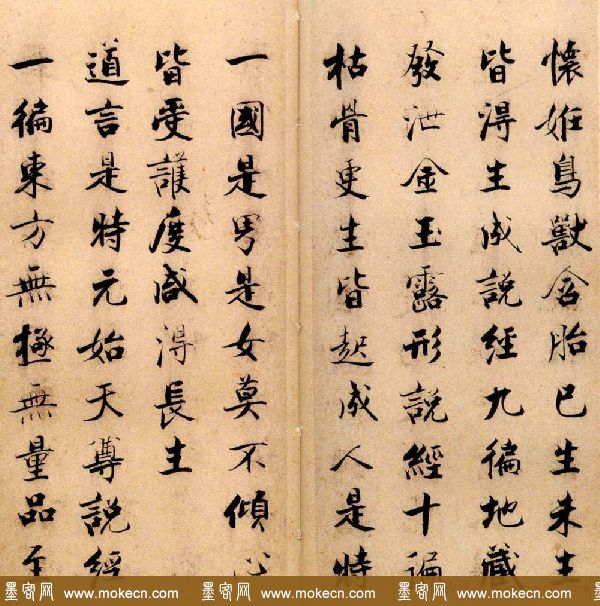 懷妊鳥獸含胎已生未生
皆淂生成說經九徧地藏
發泄金玉露形說經十徧
枯骨更生皆起成人是時
一國是男是女莫不傾心
皆受護度咸淂長生
道言是時元始天尊說經
一徧東方無極無量品至
墨客网 www.mokecn.com 墨客网 www.mokecn.com 墨客网 www.mokecn.com